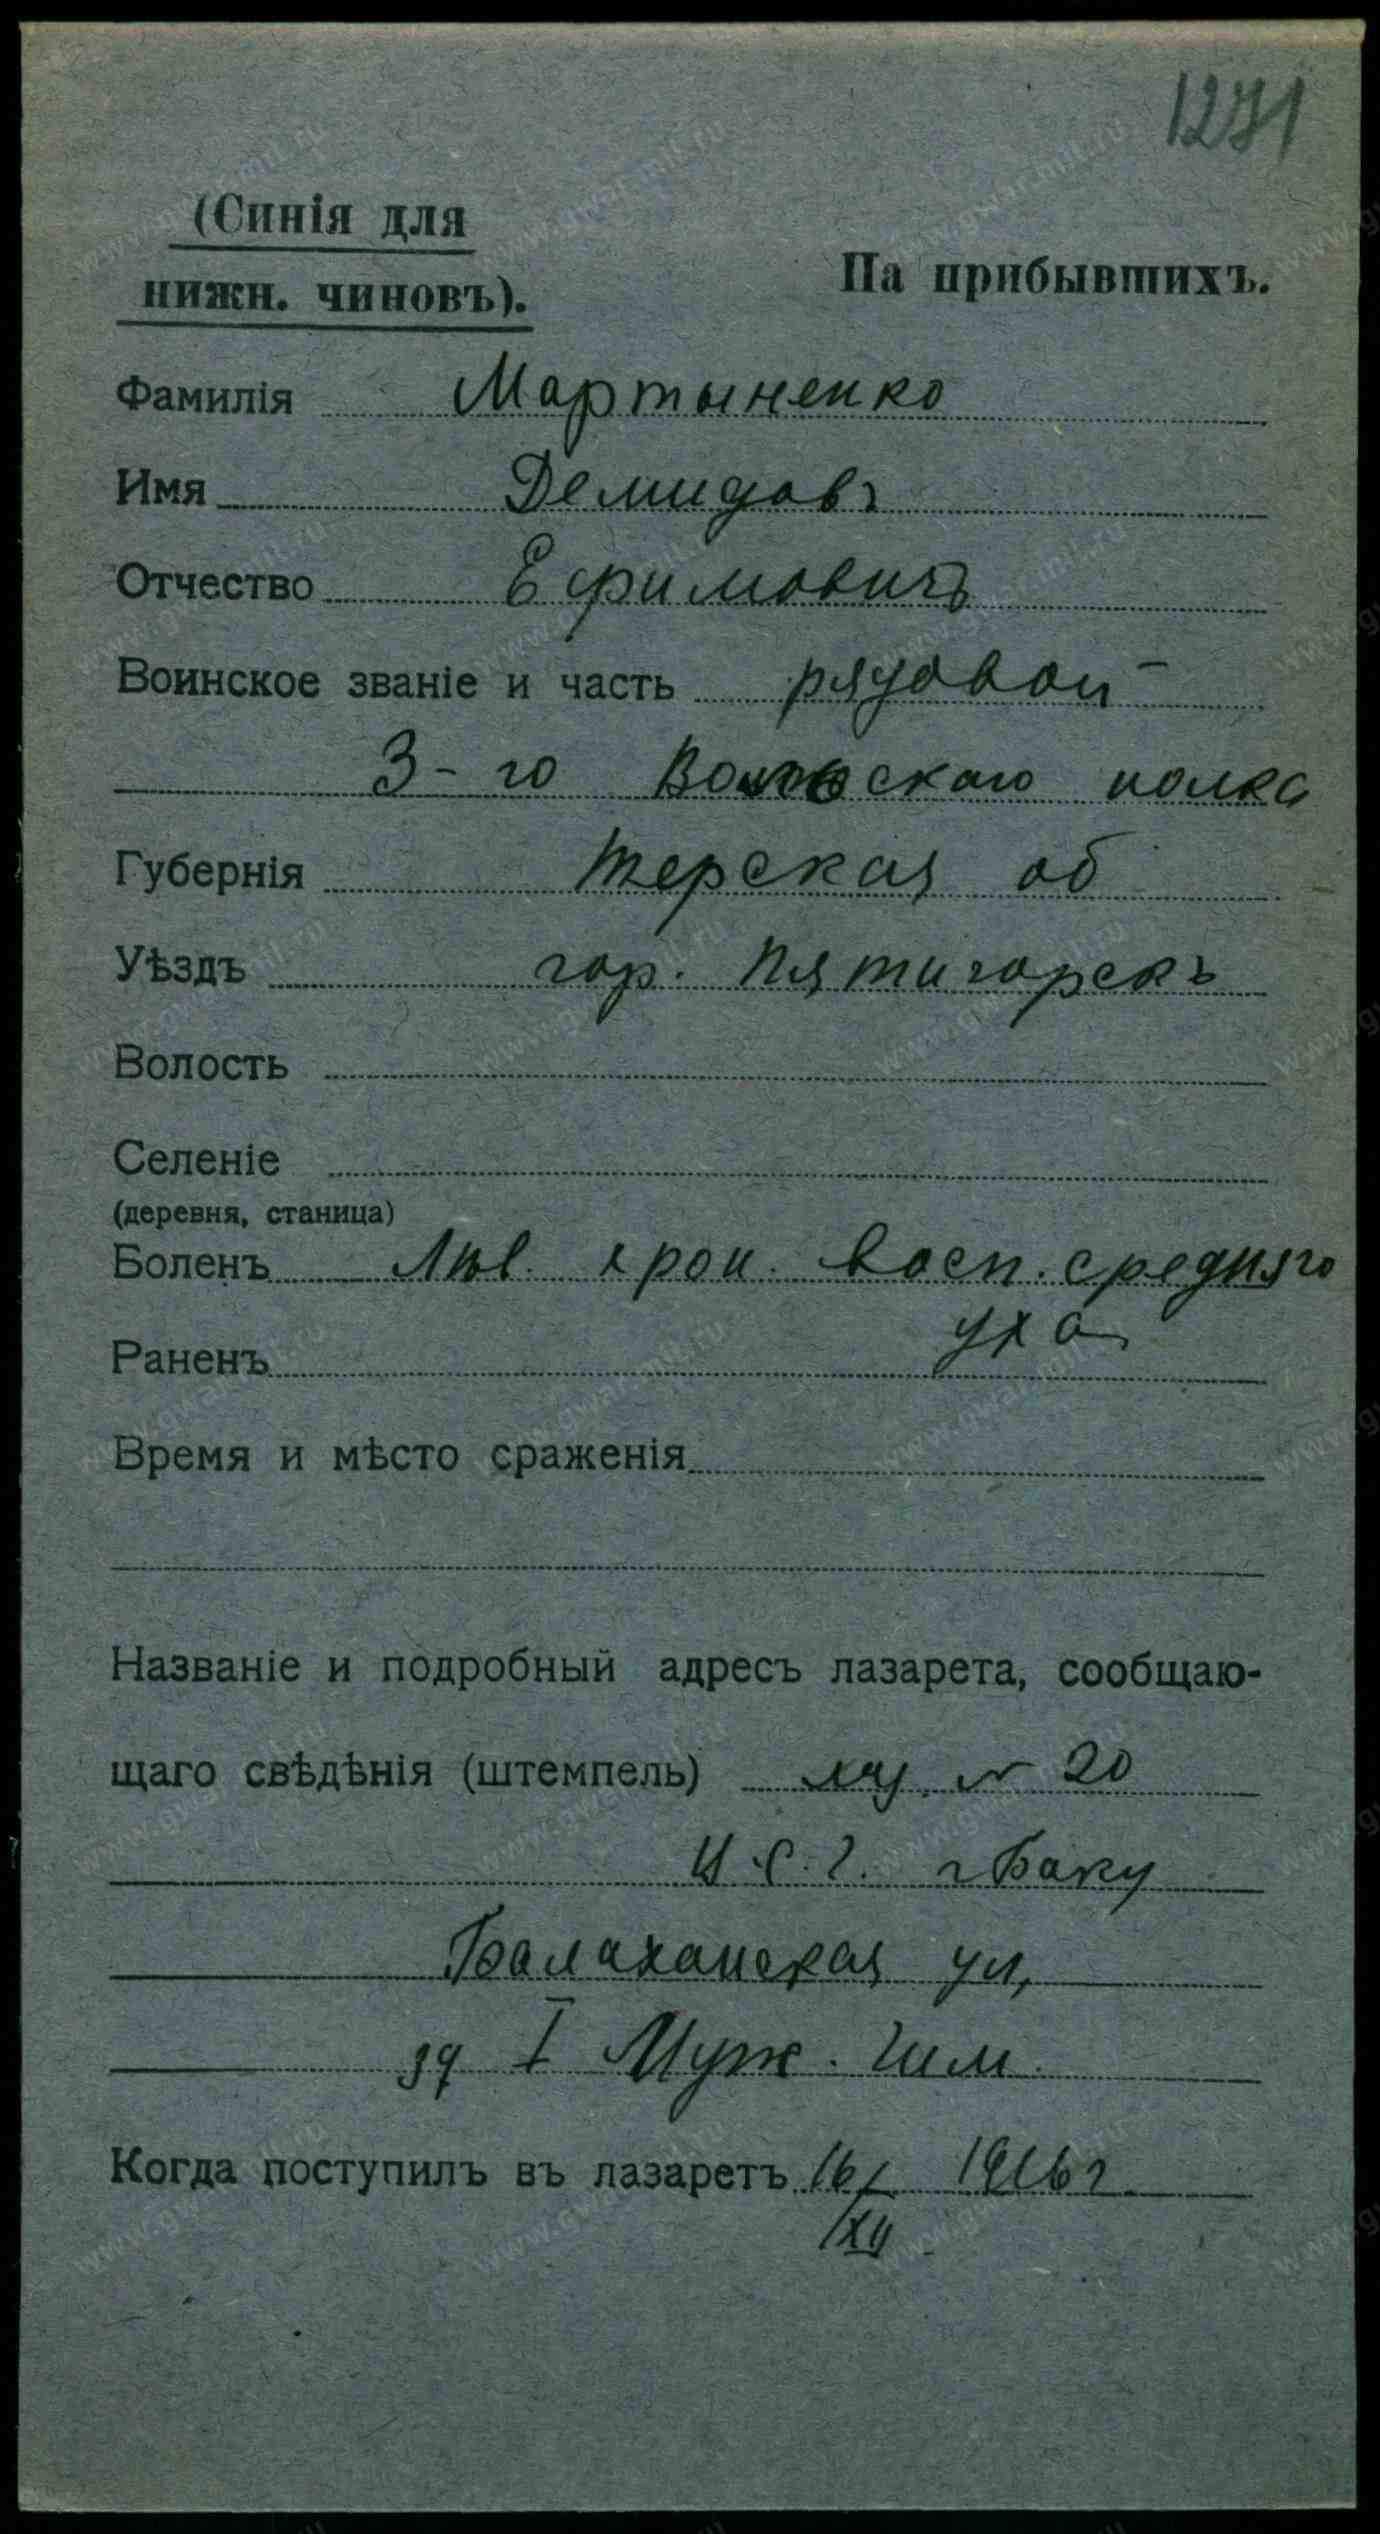 1271
(Синія для
нижн. чиновъ).
Па прибывшихъ.
Фамилія Мартыненко
Имя Демидовъ
Отчество Ефимовичъ
Воинское званіе и часть рядовой
3-го скаго полка
Губернія Терская об
Уѣздъ гор. Пятигорскъ
Волость
Селеніе
(деревня, станица)
Боленъ Лѣв. хрон. восп. средняго
уха
Раненъ
Время и мѣсто сраженія
Названіе и подробный адресъ лазарета, сообщаю-
щаго свѣдѣнія (штемпель) лаз. № 20
г Баку
Балаханская ул,
зд I Муж. Гим.
Когда поступилъ въ лазаретъ 16/XII 1916 г